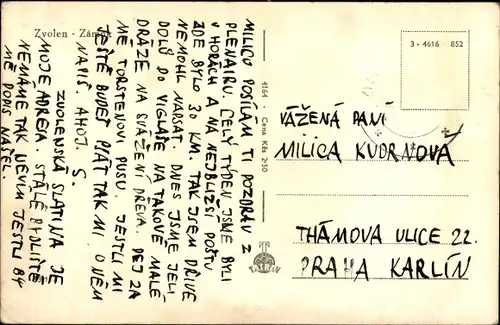 Zvolen - Zámok
MILICO POSÍLÁM TI POZDRAV Z
PLENAIRU. CELÝ TÝDEN JSME BYLI
V HORÁCH A NA NEJBLIŽŠÍ POŠTU
ZDE BYLO 30 KM. TAK JSEM DŘIVE
NEMOHL NAPSAT. DNES JSME JELI
DOLŮ DO VIGLAŠE NA TAKOVÉ MALÉ
DRÁZE NA SVÁŽENÍ DŘEVA. DEJ ZA
MĚ TORSTENOVI PUSU. JESTLI MI
JEŠTĚ BUDEŠ PSÁT TAK MI O NĚM
NAPIŠ. AHOJ. S.
ZVOLENSKÁ SLATINA JE
MOJE ADRESA. STÁLÉ BYDLIŠTĚ
NEMÁME TAK NEVÍM JESTLI BY
MĚ DOPIS NAŠEL.
4164 Cena Kčs 2·50
TATRAN
3 - 4616 - 852
VÁŽENÁ PANÍ
MILICA KUDRNOVÁ
THÁMOVA ULICE 22.
PRAHA KARLÍN